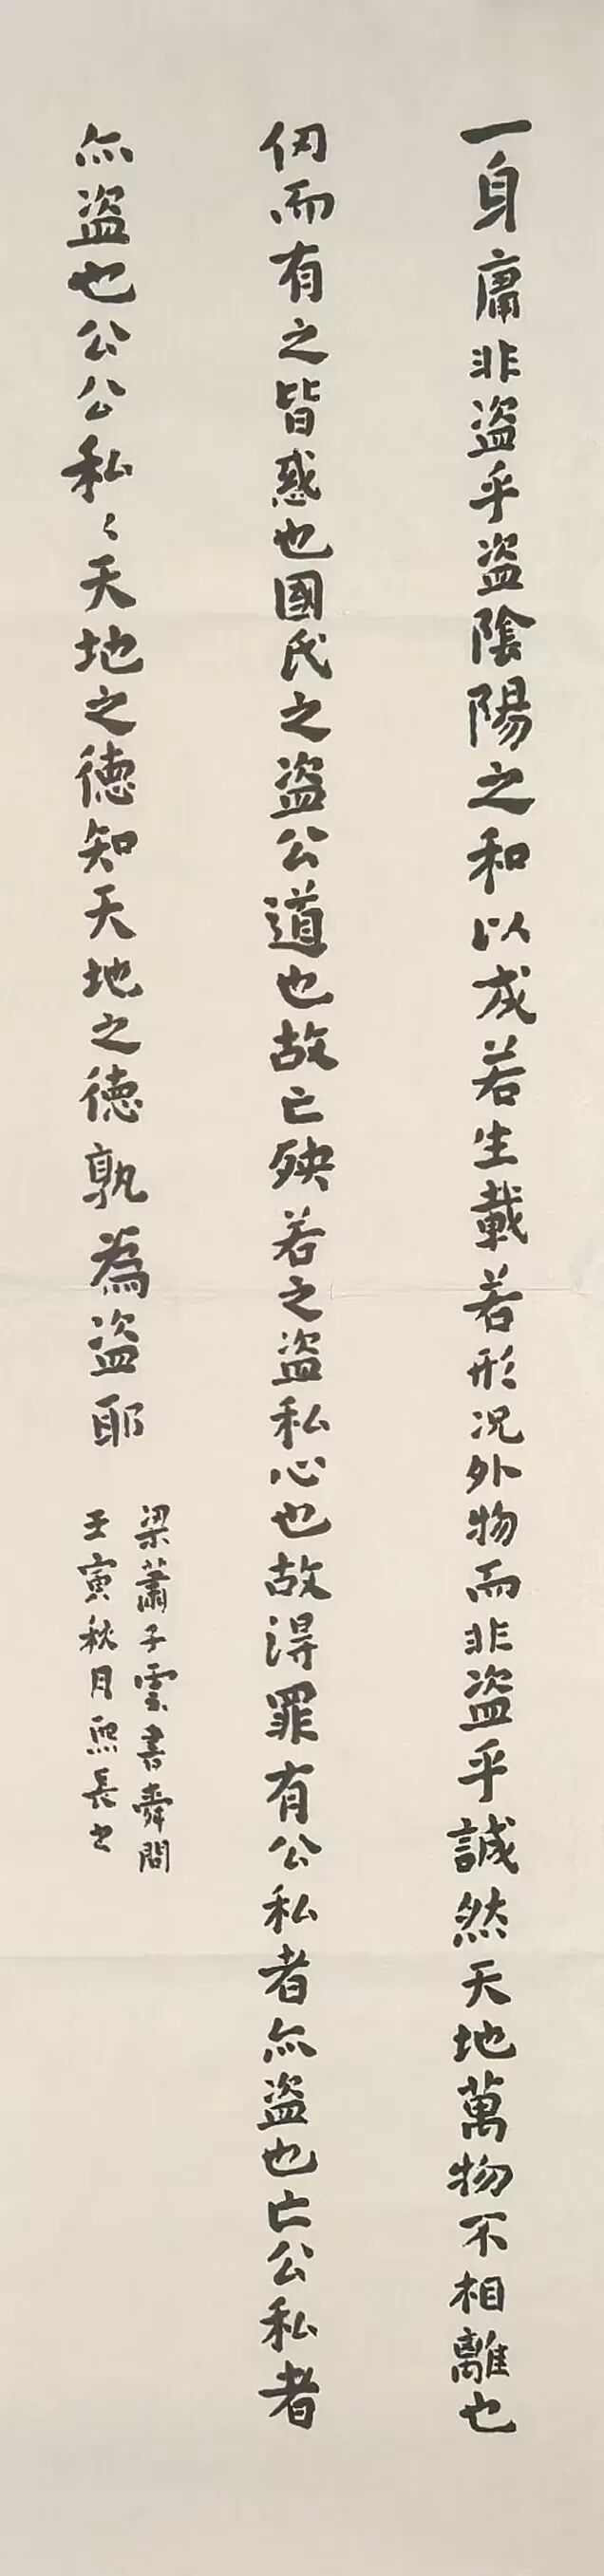 一身庸非盗乎盗陰陽之和以成若生載若形况外物而非盗乎誠然天地萬物不相離也
仞而有之皆惑也國氏之盗公道也故亡殃若之盗私心也故得罪有公私者亦盗也亡公私者
亦盗也公公私々天地之德知天地之德孰為盗耶
梁蕭子雲書舜問
壬寅秋月熙長書